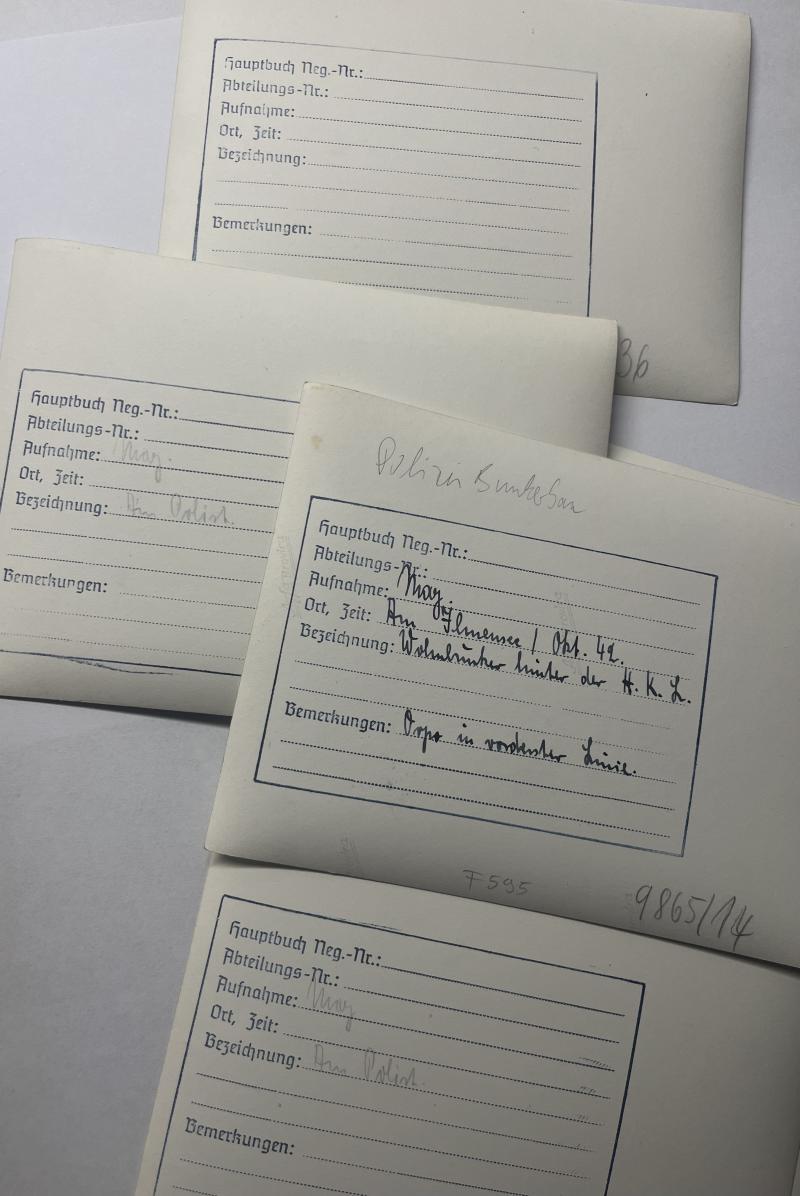 Hauptbuch Neg.-Nr.:
Abteilungs-Nr.:
Aufnahme:
Ort, Zeit:
Bezeichnung:
Bemerkungen:
36
Hauptbuch Neg.-Nr.:
Abteilungs-Nr.:
Aufnahme: May.
Ort, Zeit:
Bezeichnung: Am Polist.
Bemerkungen:
Polizei Bunkerbau
Hauptbuch Neg.-Nr.:
Abteilungs-Nr.:
Aufnahme: May.
Ort, Zeit: Am Ilmensee / Okt. 42.
Bezeichnung: Wohnbunker hinter der H. K. L.
Bemerkungen: Orpo in vorderster Linie.
F 595
9865/14
Hauptbuch Neg.-Nr.:
Abteilungs-Nr.:
Aufnahme: May
Ort, Zeit:
Bezeichnung: Am Polist.
Bemerkungen: